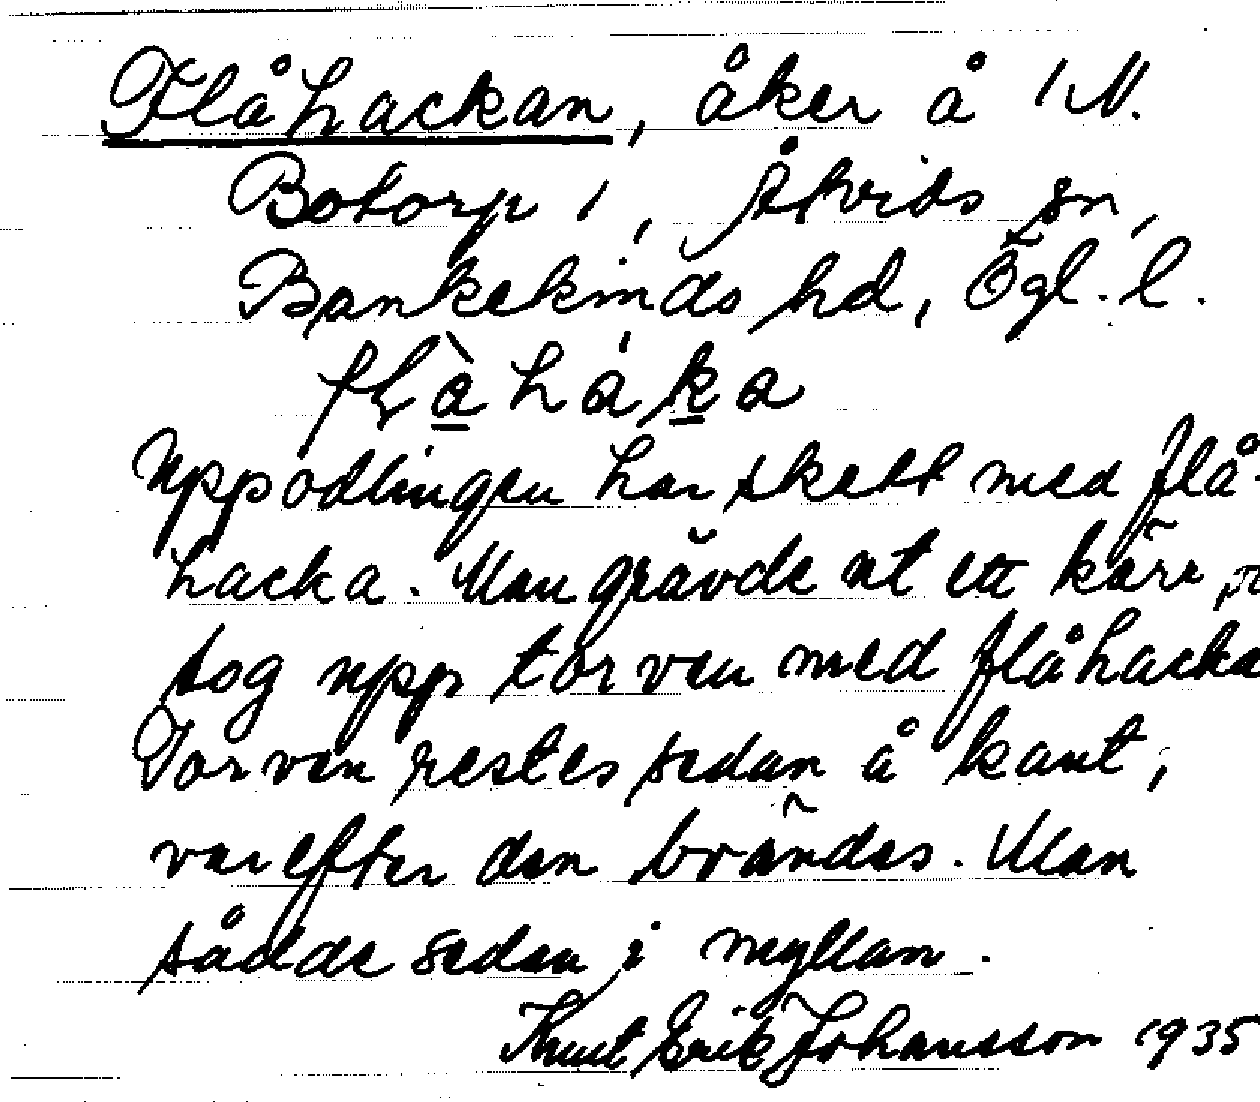 Flåhackan, åker å 1 M.
Botorp 1, Åtvids sn,
Bankekinds hd, Ögl. l.
Uppodlingen har skett med flå-
hacka. Man grävde ut ett kärr,
tog upp torven med flåhacka
Torven restes sedan å kant,
varefter den brändes. Man
sådde sedan i myllan.
Knut Erik Johansson 1935